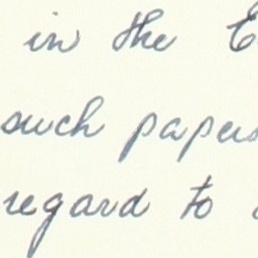 in the
such papers
regard to